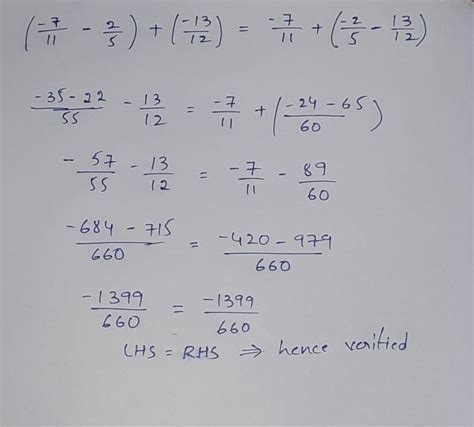 (-7/11 - 2/5) + (-13/12) = -7/11 + (-2/5 - 13/12)
-35-22/55 - 13/12 = -7/11 + (-24-65/60)
-57/55 - 13/12 = -7/11 - 89/60
-684-715/660 = -420-979/660
-1399/660 = -1399/660
LHS = RHS ⇒ hence verified